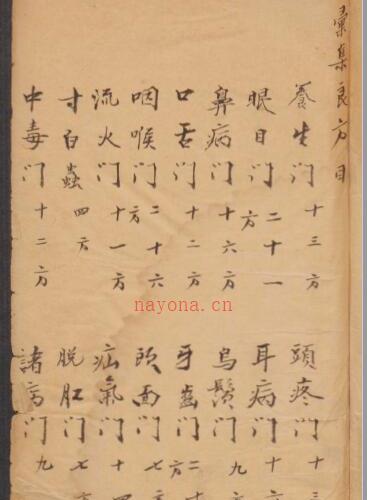 彙集良方目
養生门 十三方
頭疼门 十三
眼目门 二十一方
耳病门 十
鼻病门 十六方
烏鬚门 九
口舌门 十二方
牙齒门 十二方
咽喉门 二十六方
頭面门 七方
流火门 十一方
疝氣门 十四
寸白蟲 四方
脱肛门 七
中毒门 十二方
諸瘑门 九
nayona.cn